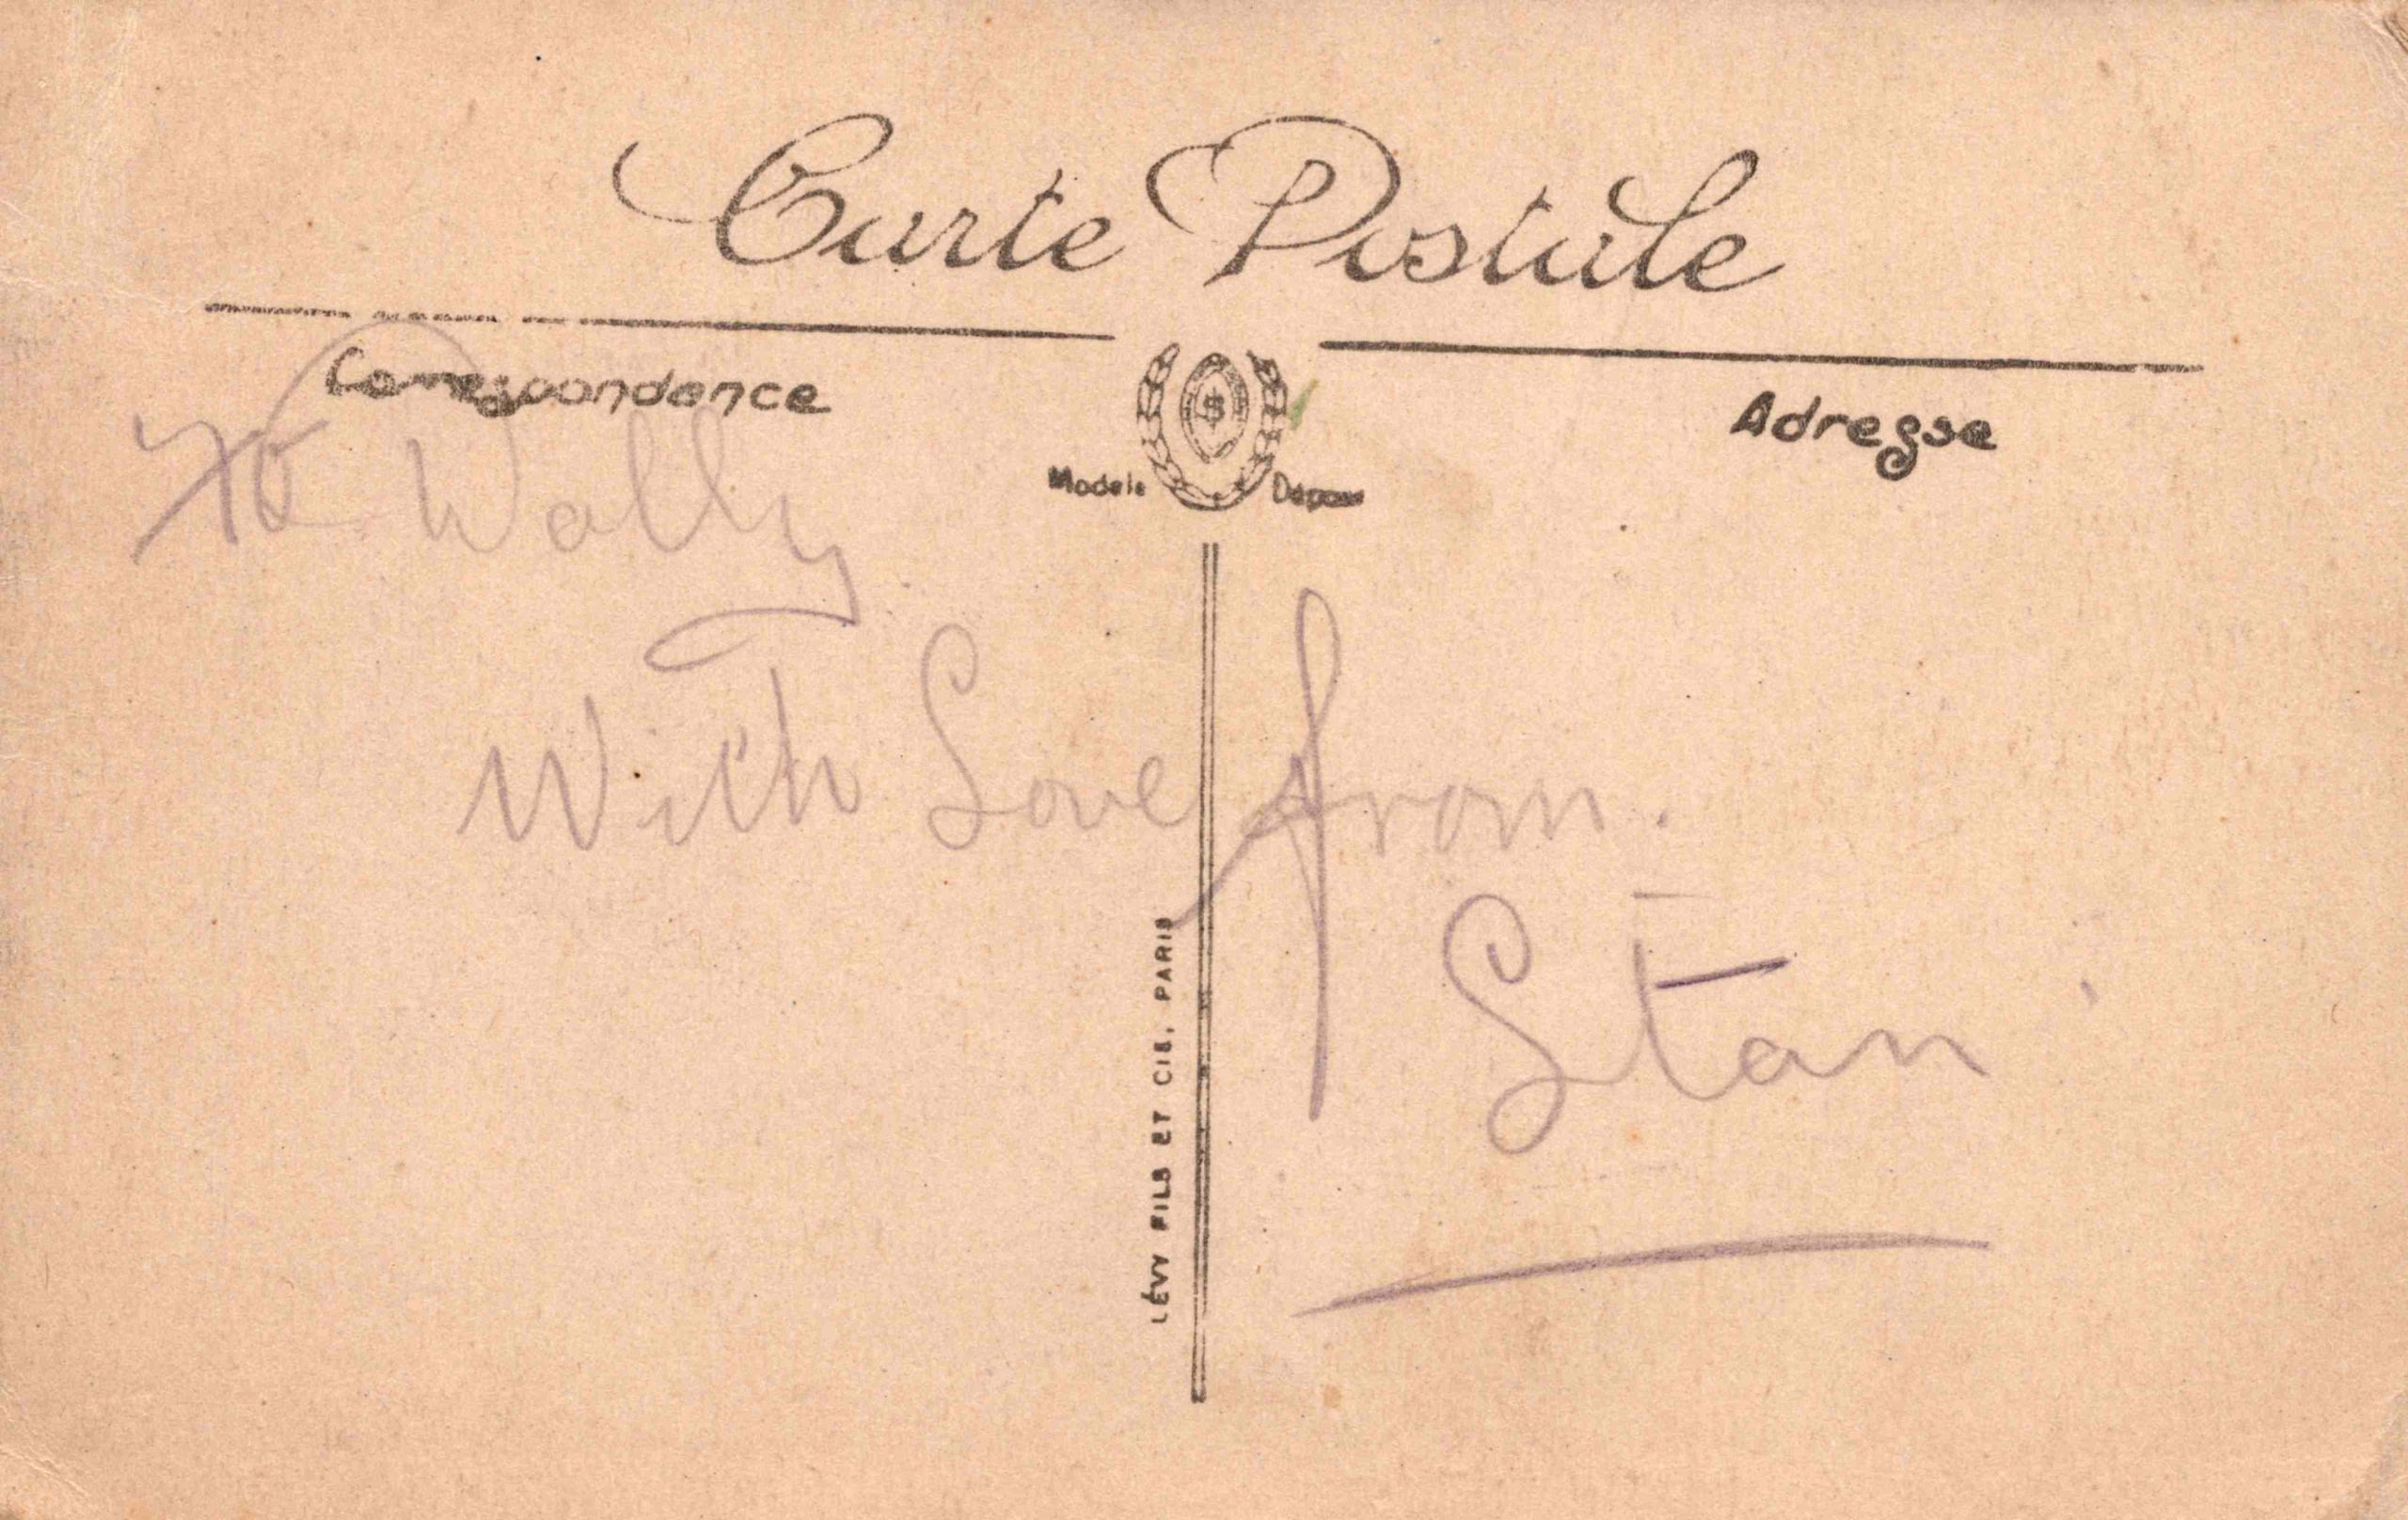 Carte Postale
Correspondance
Adresse
$
Modèle Déposé
To Wally
With Love from.
Stan
LÉVY FILS ET CIE, PARIS